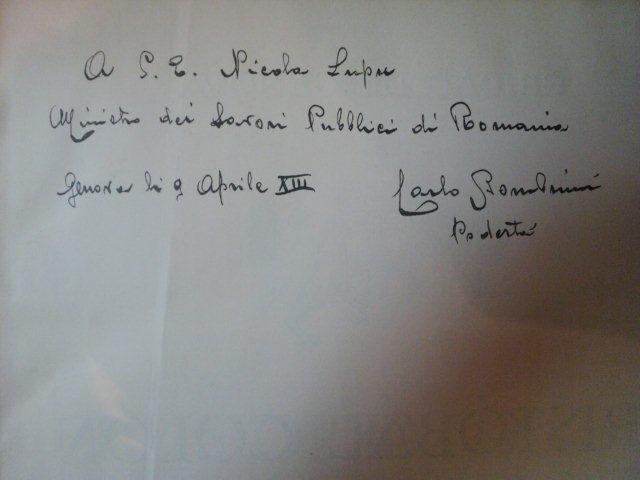 A S. E. Nicola Lupu
Ministro dei Lavori Pubblici di Romania
Genova li 9 Aprile XIII
Carlo Bombrini
Podestà